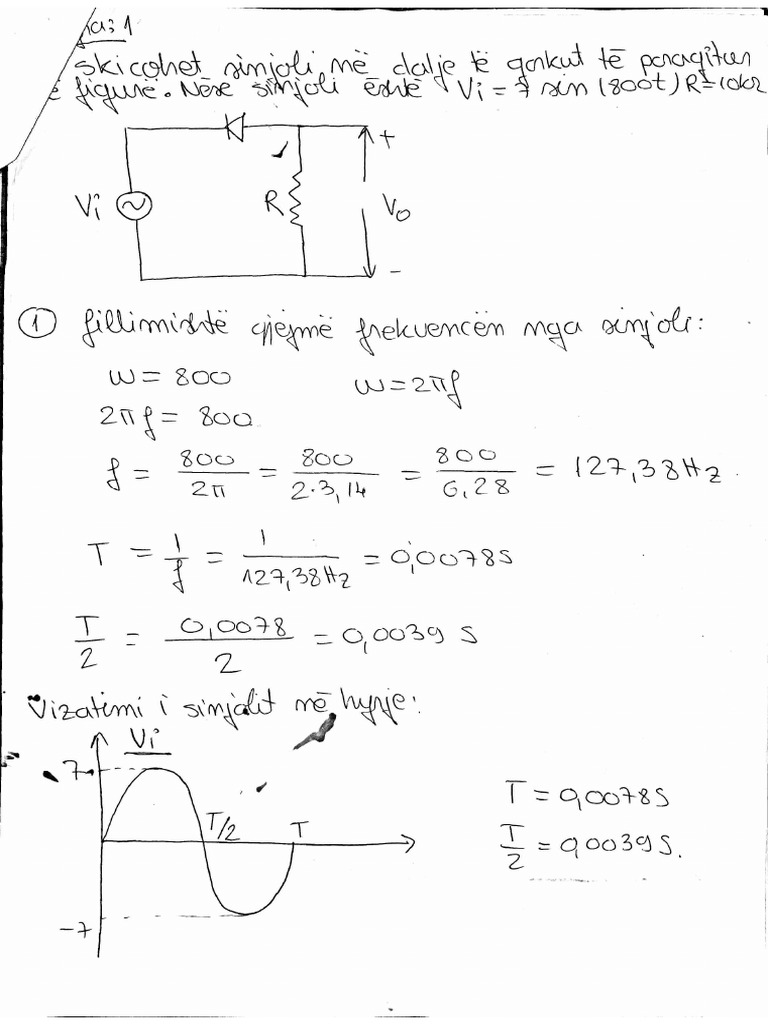 a: 1
skicohet sinjali në dalje të qarkut të paraqitur
ë figurë. Nëse sinjali është Vi = 7 sin (800t) R=10kΩ
+
Vi
R
Vo
-
① fillimishtë gjejmë frekuencën nga sinjali:
w = 800 w = 2πf
2πf = 800
f = 800/2π = 800/2·3,14 = 800/6,28 = 127,38Hz.
T = 1/f = 1/127,38Hz = 0,0078s
T/2 = 0,0078/2 = 0,0039 s
Vizatimi i sinjalit në hyrje:
Vi
7
T/2
T
T = 0,0078s
T/2 = 0,0039s.
-7